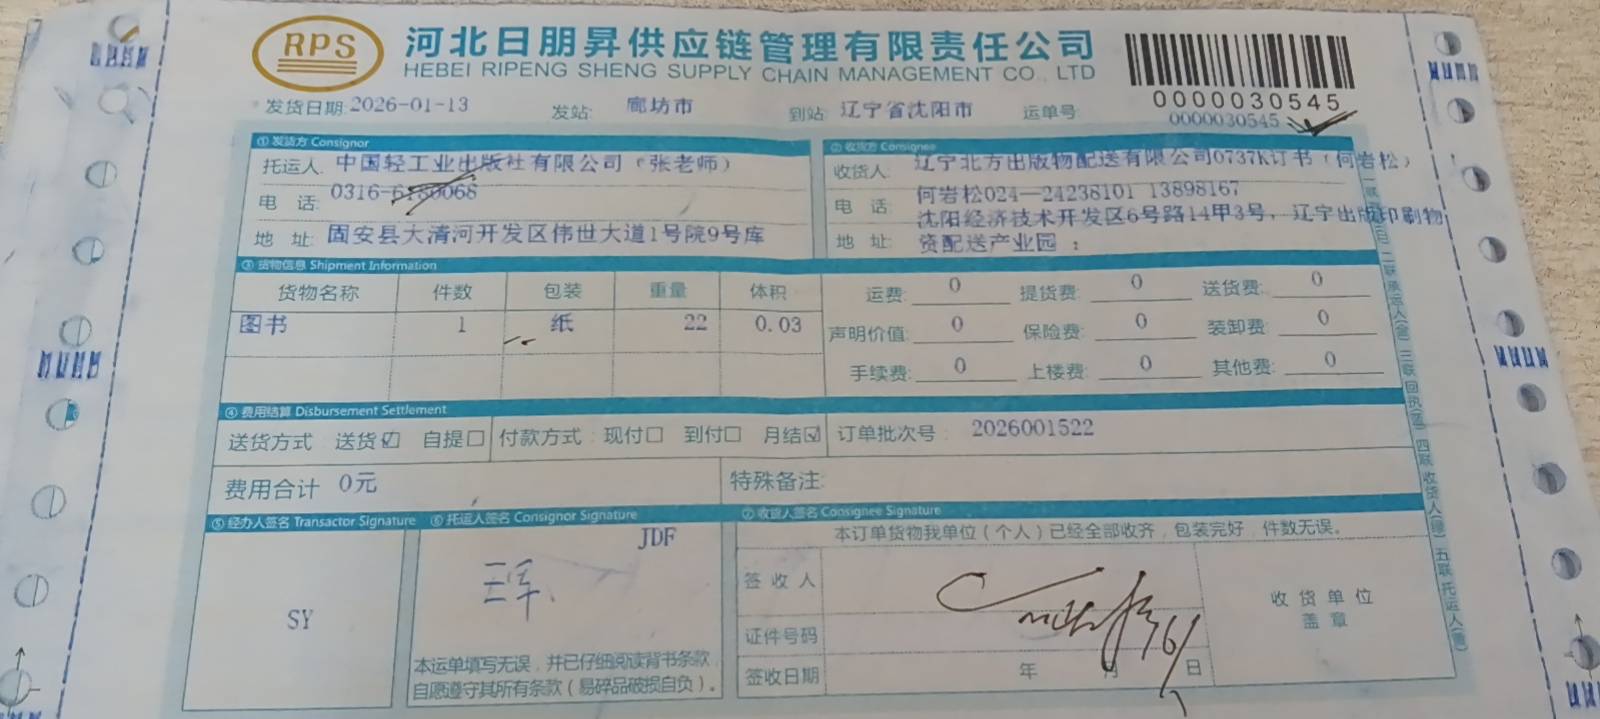 RPS
河北日朋昇供应链管理有限责任公司
HEBEI RIPENG SHENG SUPPLY CHAIN MANAGEMENT CO., LTD
0000030545
发货日期: 2026-01-13 发站: 廊坊市 到站: 辽宁省沈阳市 运单号: 0000030545
① 发货方 Consignor ② 收货方 Consignee
托运人: 中国轻工业出版社有限公司（张老师） 收货人: 辽宁北方出版物配送有限公司0737K订书（何岩松）
电 话: 0316-6180068 电 话: 何岩松024—24238101 13898167
地 址: 固安县大清河开发区伟世大道1号院9号库 地 址: 沈阳经济技术开发区6号路14甲3号，辽宁出版印刷物
资配送产业园 ；
③ 货物信息 Shipment Information
货物名称 件数 包装 重量 体积 运费: 0 提货费: 0 送货费: 0
图书 1 纸 22 0.03 声明价值: 0 保险费: 0 装卸费: 0
手续费: 0 上楼费: 0 其他费: 0
④ 费用结算 Disbursement Settlement
送货方式: 送货☑ 自提□ 付款方式: 现付□ 到付□ 月结☑ 订单批次号: 2026001522
费用合计 0元 特殊备注:
⑤ 经办人签名 Transactor Signature ⑥ 托运人签名 Consignor Signature ⑦ 收货人签名 Consignee Signature
JDF 本订单货物我单位（个人）已经全部收齐，包装完好，件数无误。
SY
签 收 人
收 货 单 位
盖 章
证件号码
签收日期 年 月 日
本运单填写无误，并已仔细阅读背书条款，
自愿遵守其所有条款（易碎品破损自负）。
二联承运人(金) 三联回执(蓝) 四联收货人(绿) 五联托运人(黄)